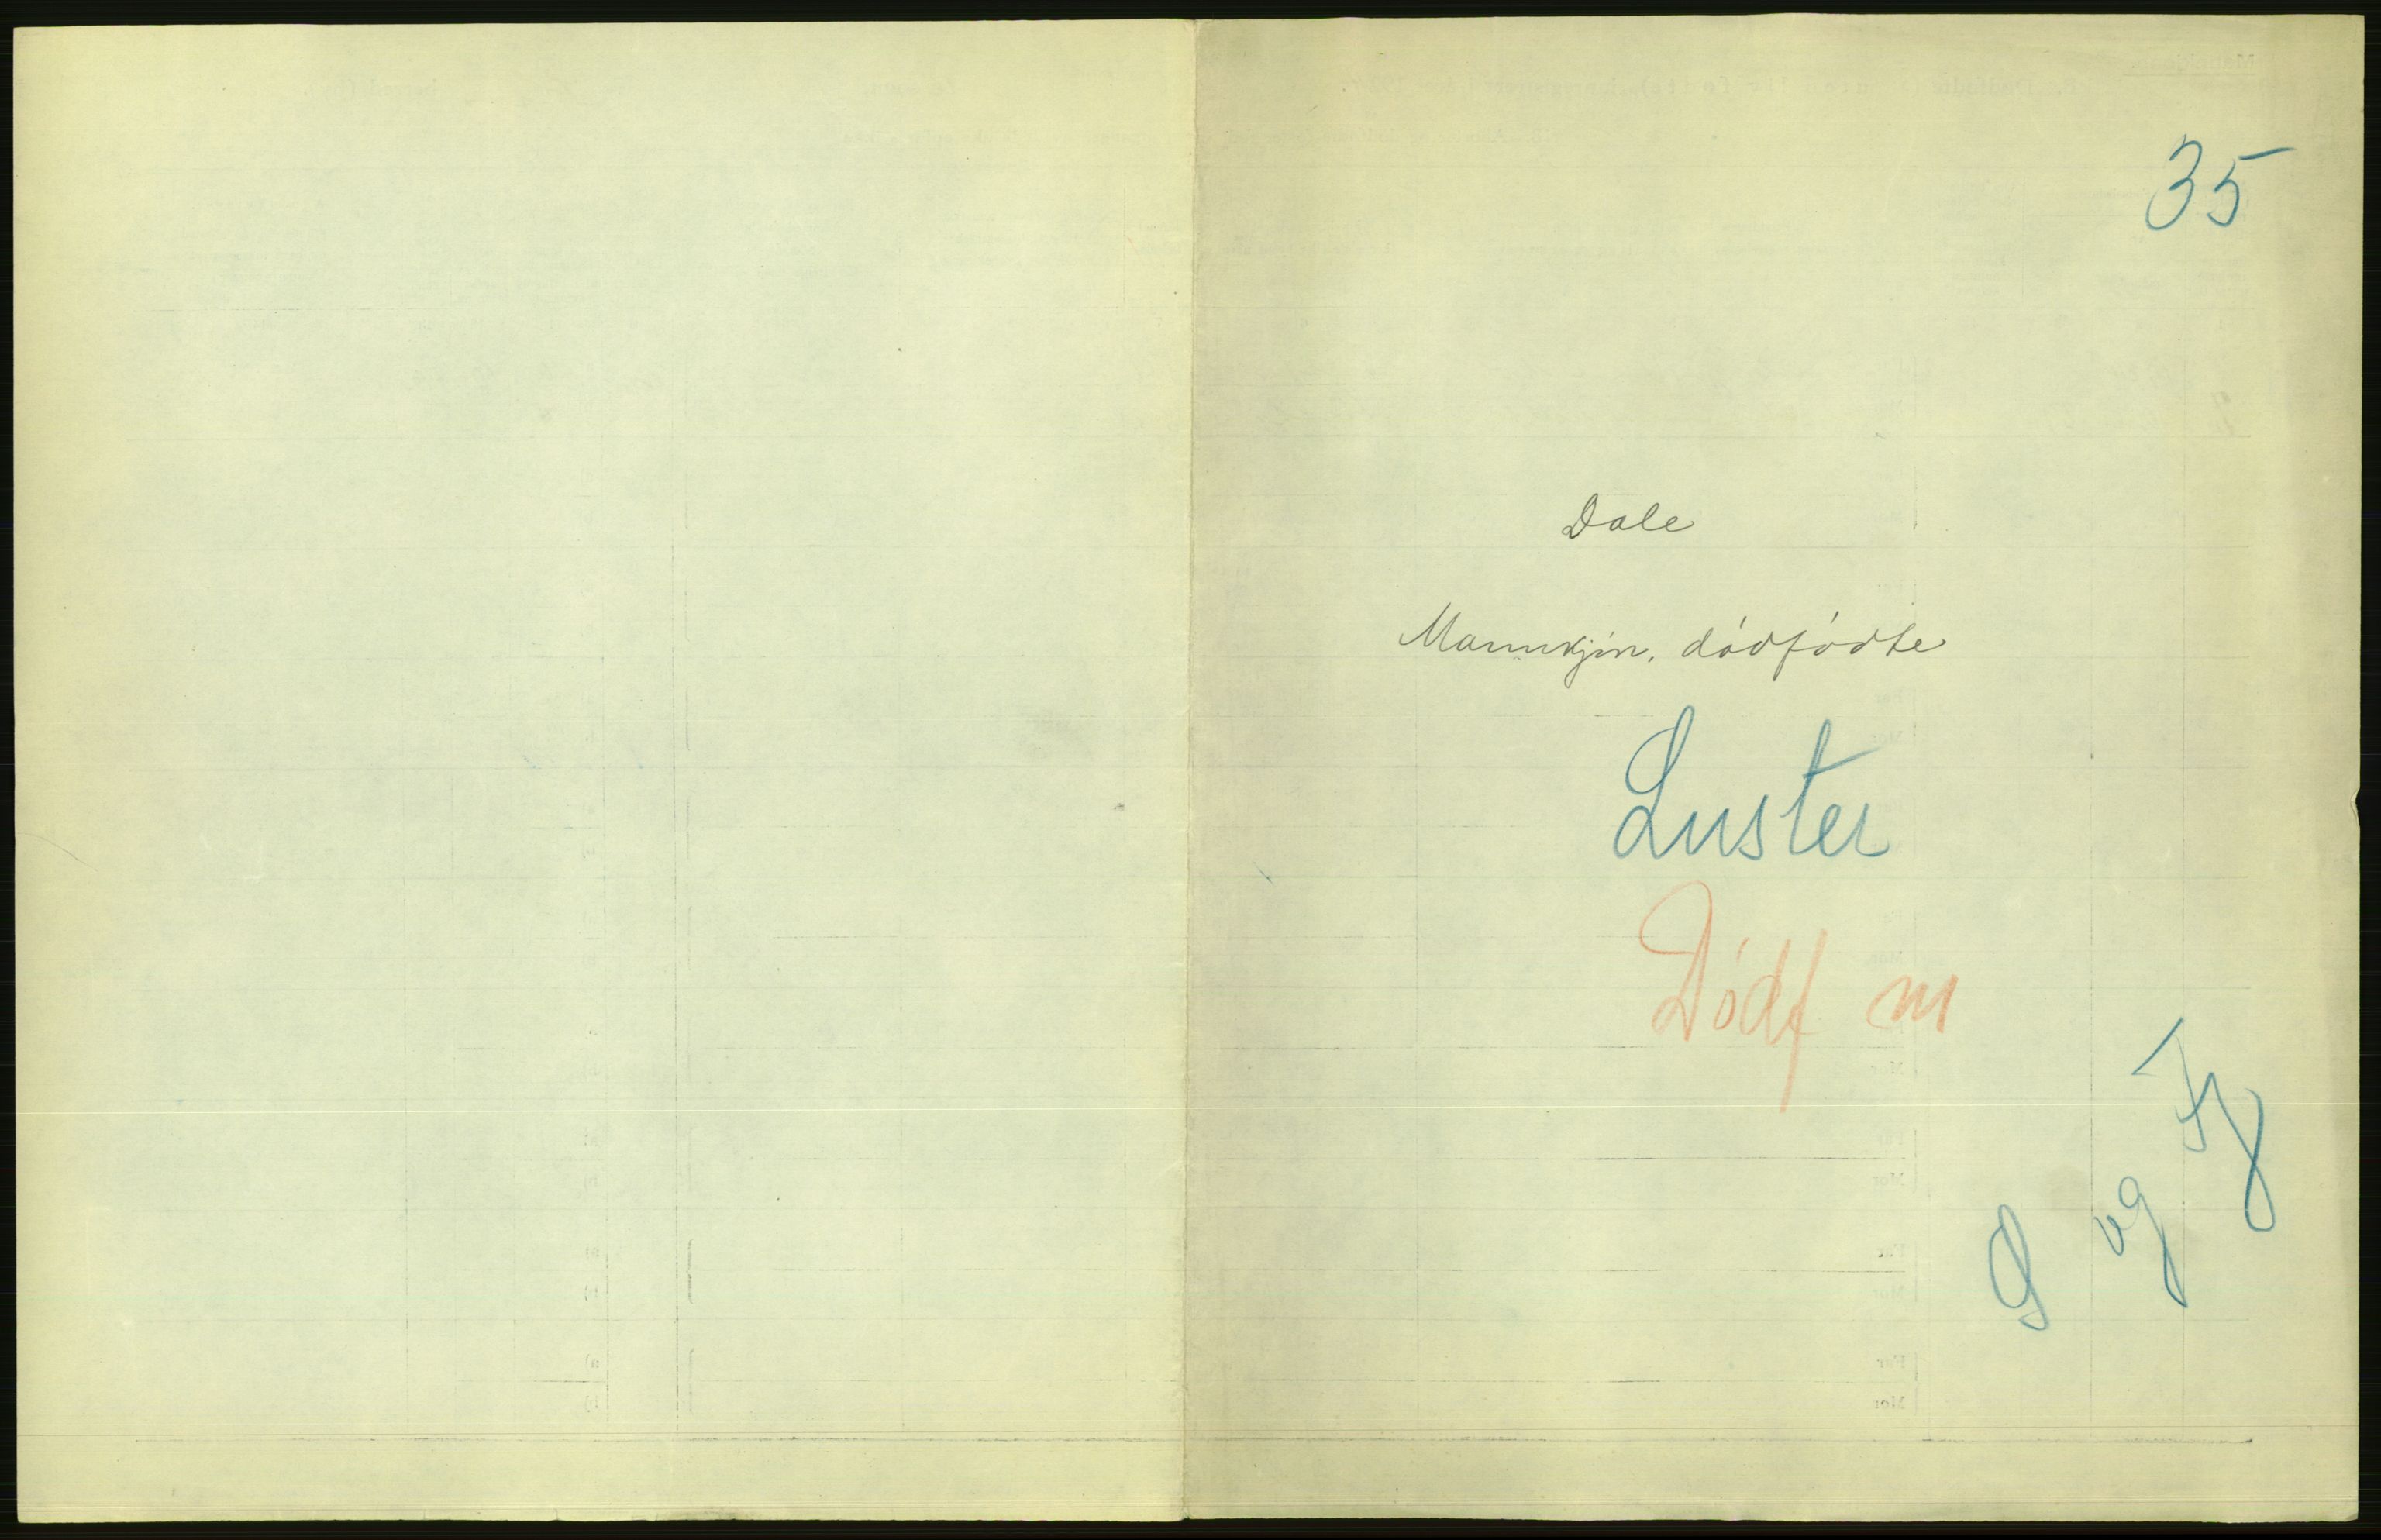 35
Dale
Mannkjøn. dødfødte
Luster
Dødf m
S og Fj